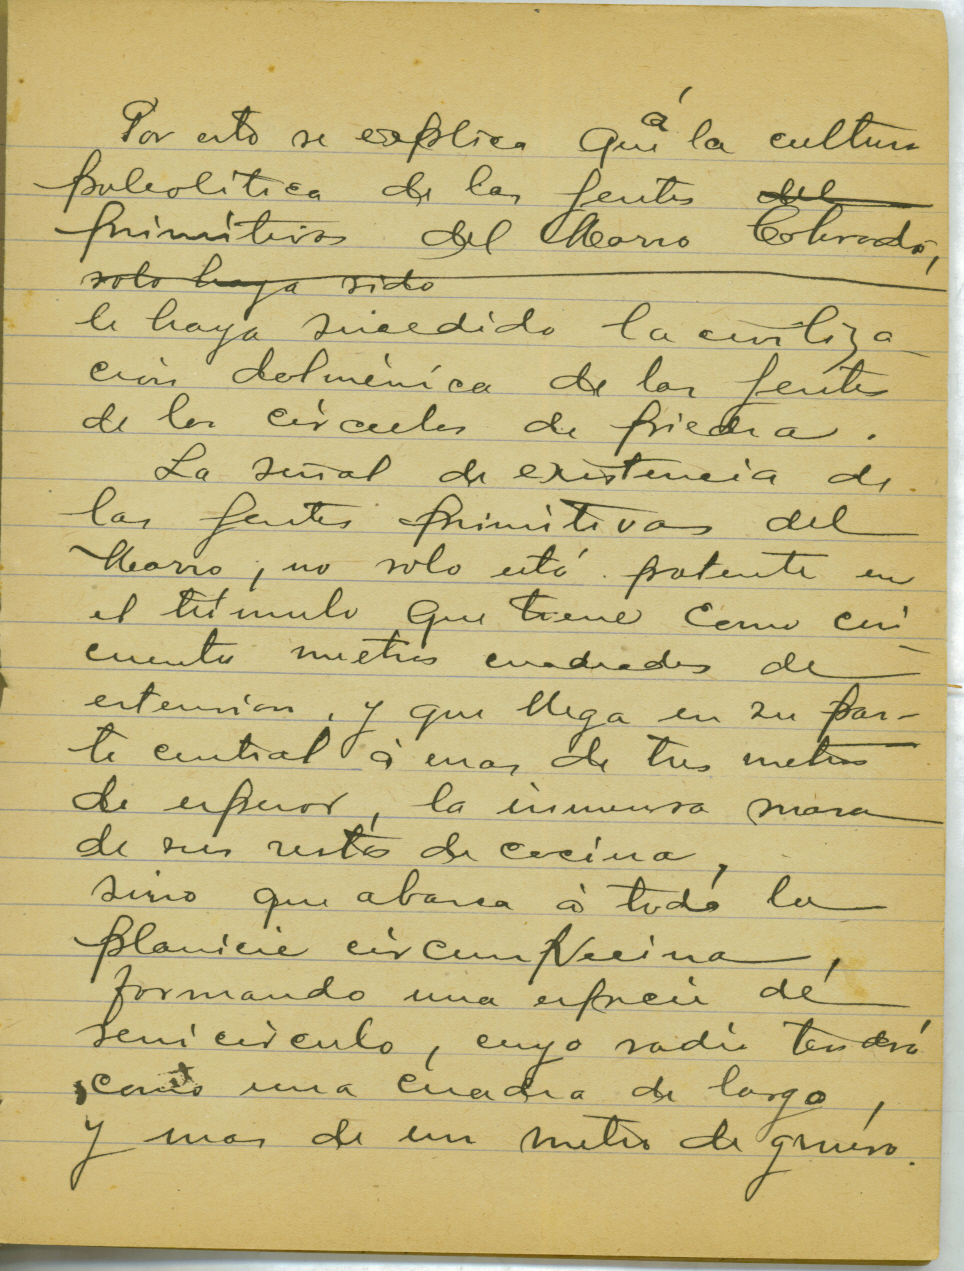 Por esto se explica que á la cultura
paleolitica de las gentes del
primitivas del Morro Colorado,
solo haya sido
le haya sucedido la civiliza-
ción dolménica de las gentes
de los círculos de piedra.
La señal de existencia de
las gentes primitivas del
Morro, no solo está patente en
el túmulo que tiene como cin-
cuenta metros cuadrados de
estension, y que llega en su par-
te central á mas de tres metros
de espesor, la inmensa masa
de sus restos de cocina,
sino que abarca á toda la
planicie circunvecina,
formando una especie de
semicirculo, cuyo radio tendrá
como una cuadra de largo,
y mas de un metro de grueso.